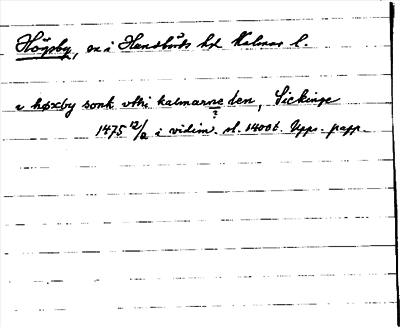 Högsby, sn i Handbörds hd Kalmar l.
i høxby sonk vthi kalmarne den, Sickinge
?
1475 12/2 i vidim. sl. 1400t. Upps. papp.